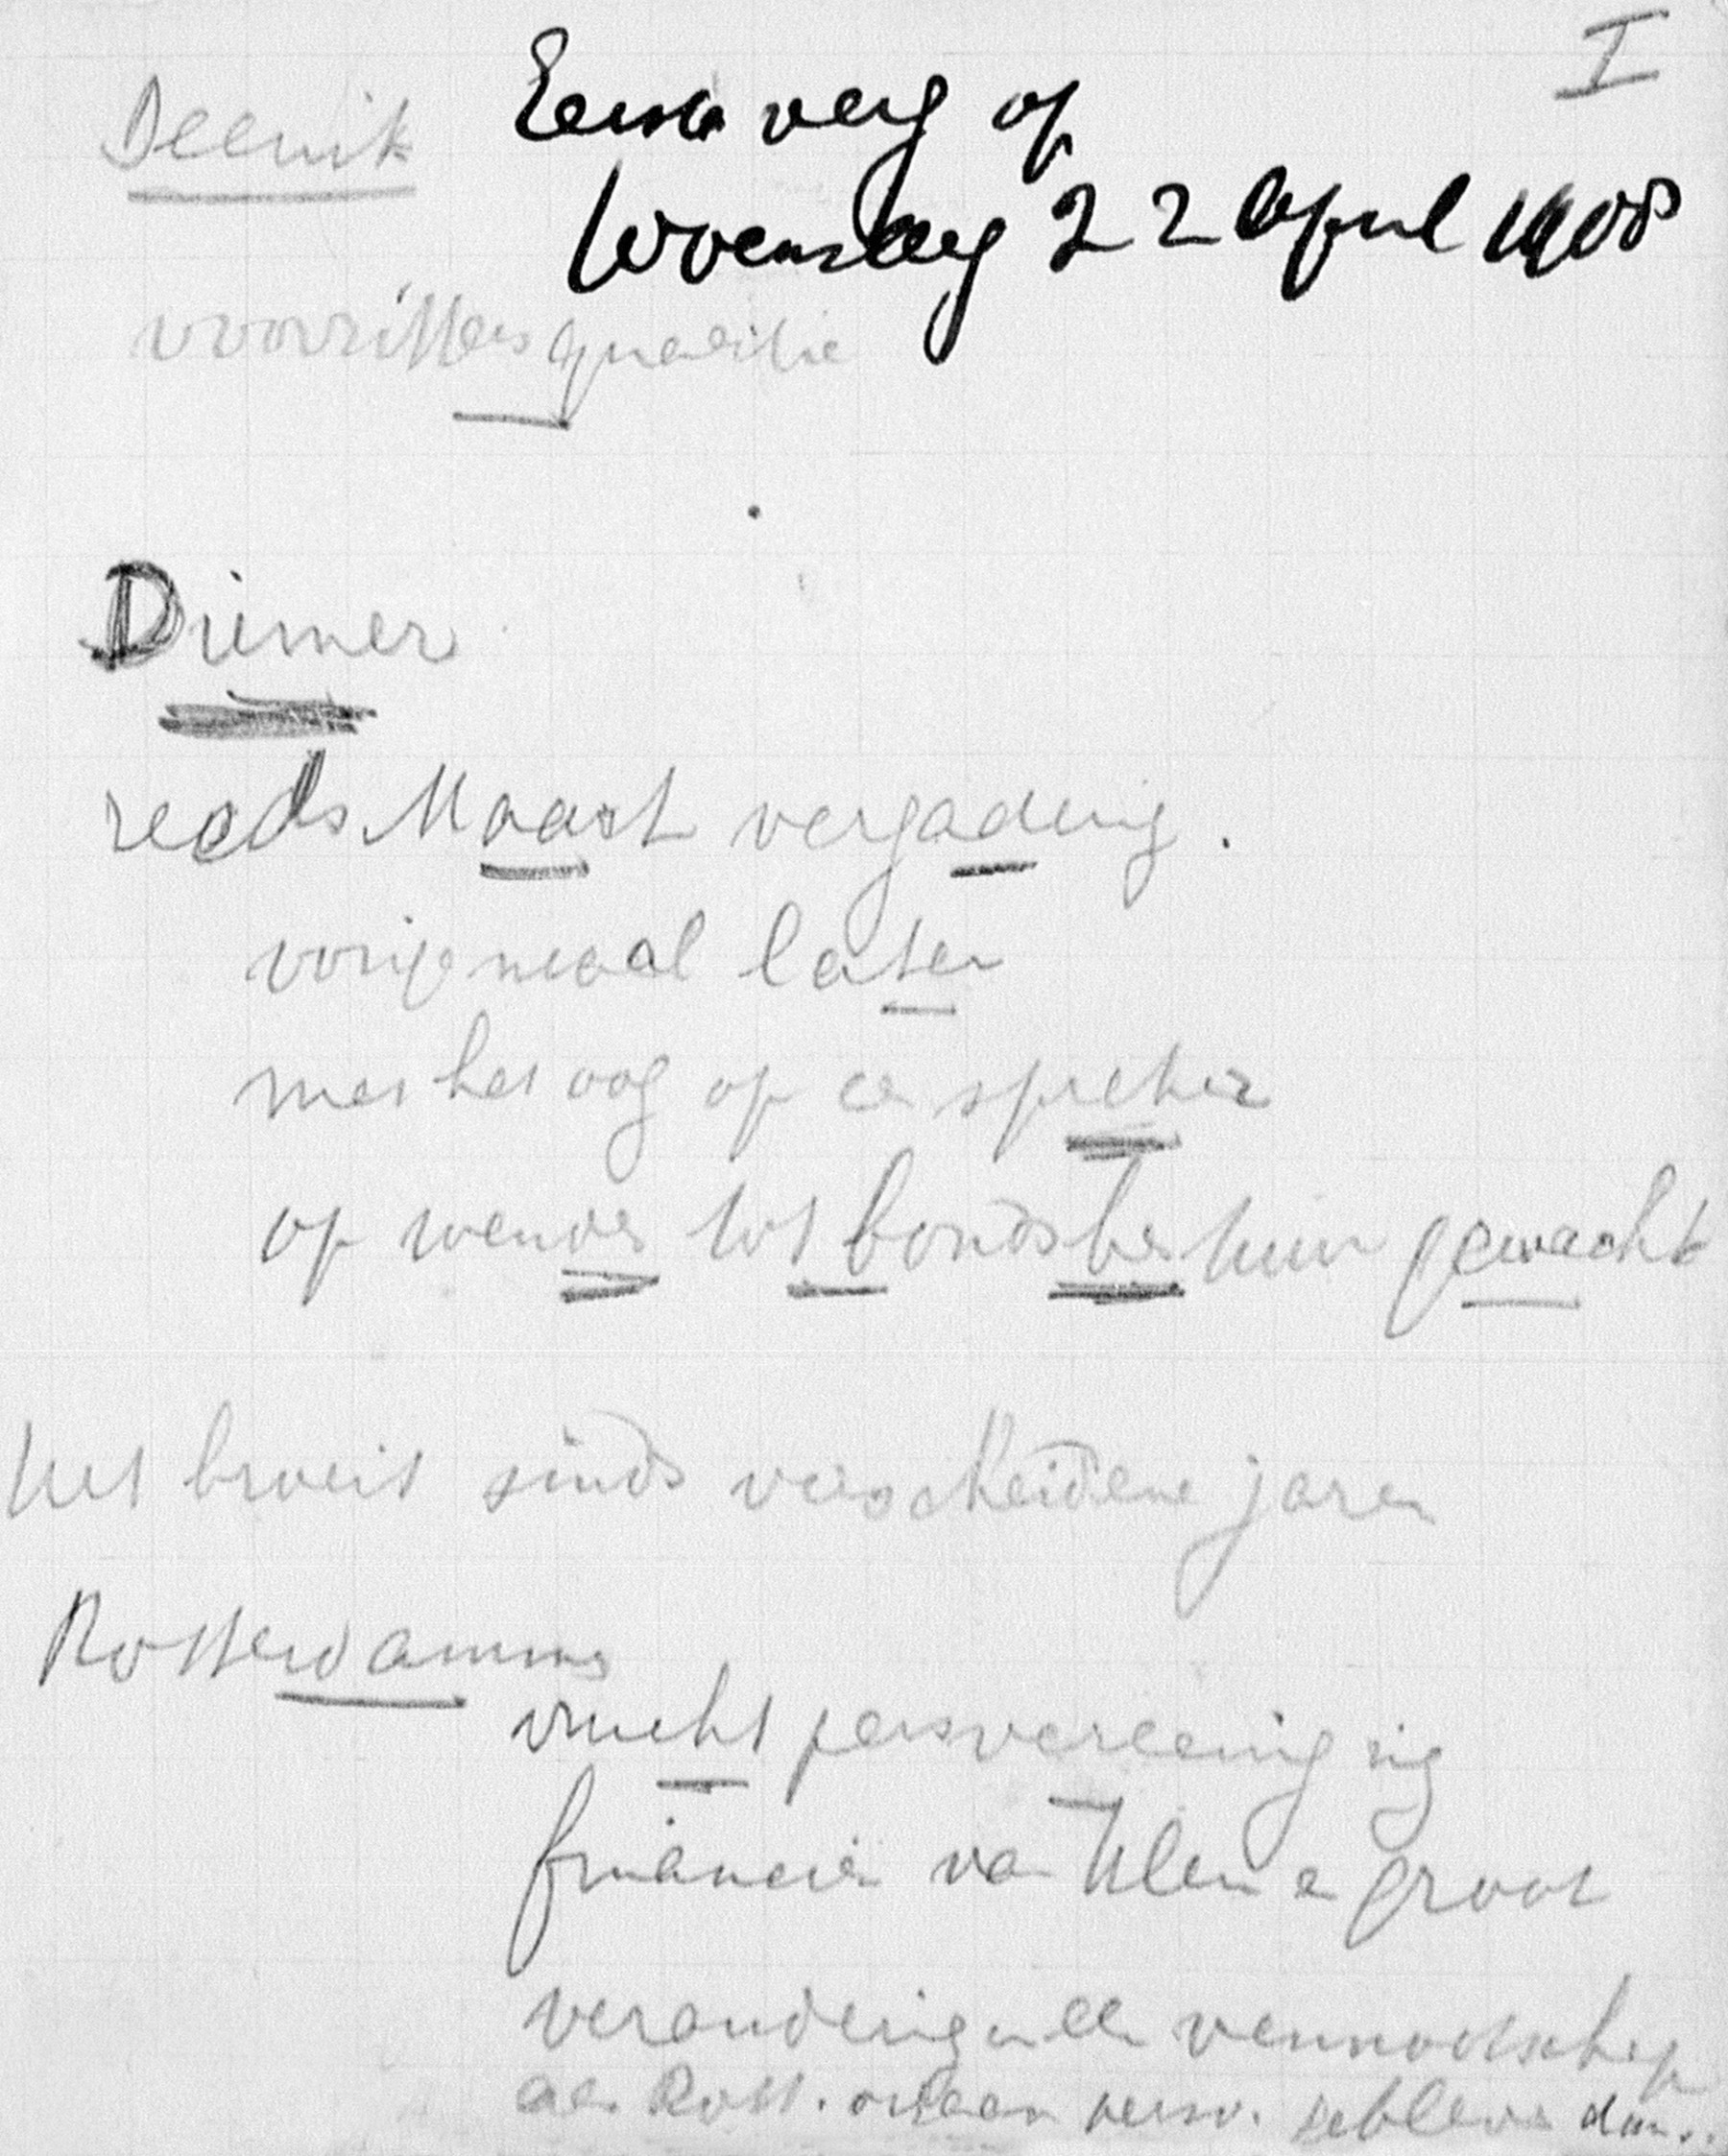 I
Deenik
Eerste verg op
Woensdag 22 April 1908
voorzitters quaestie
Diemer
reeds Maart vergadering.
vorige maal later
met het oog op een spreker
op wenden tot bondsbestuur gewacht
het broeit sinds verscheidene jaren
Rotterdammer
vrucht persvereeniging
financien van klein en groot
verandering in een vennootschap
Rott. orgaan gebleven dan..